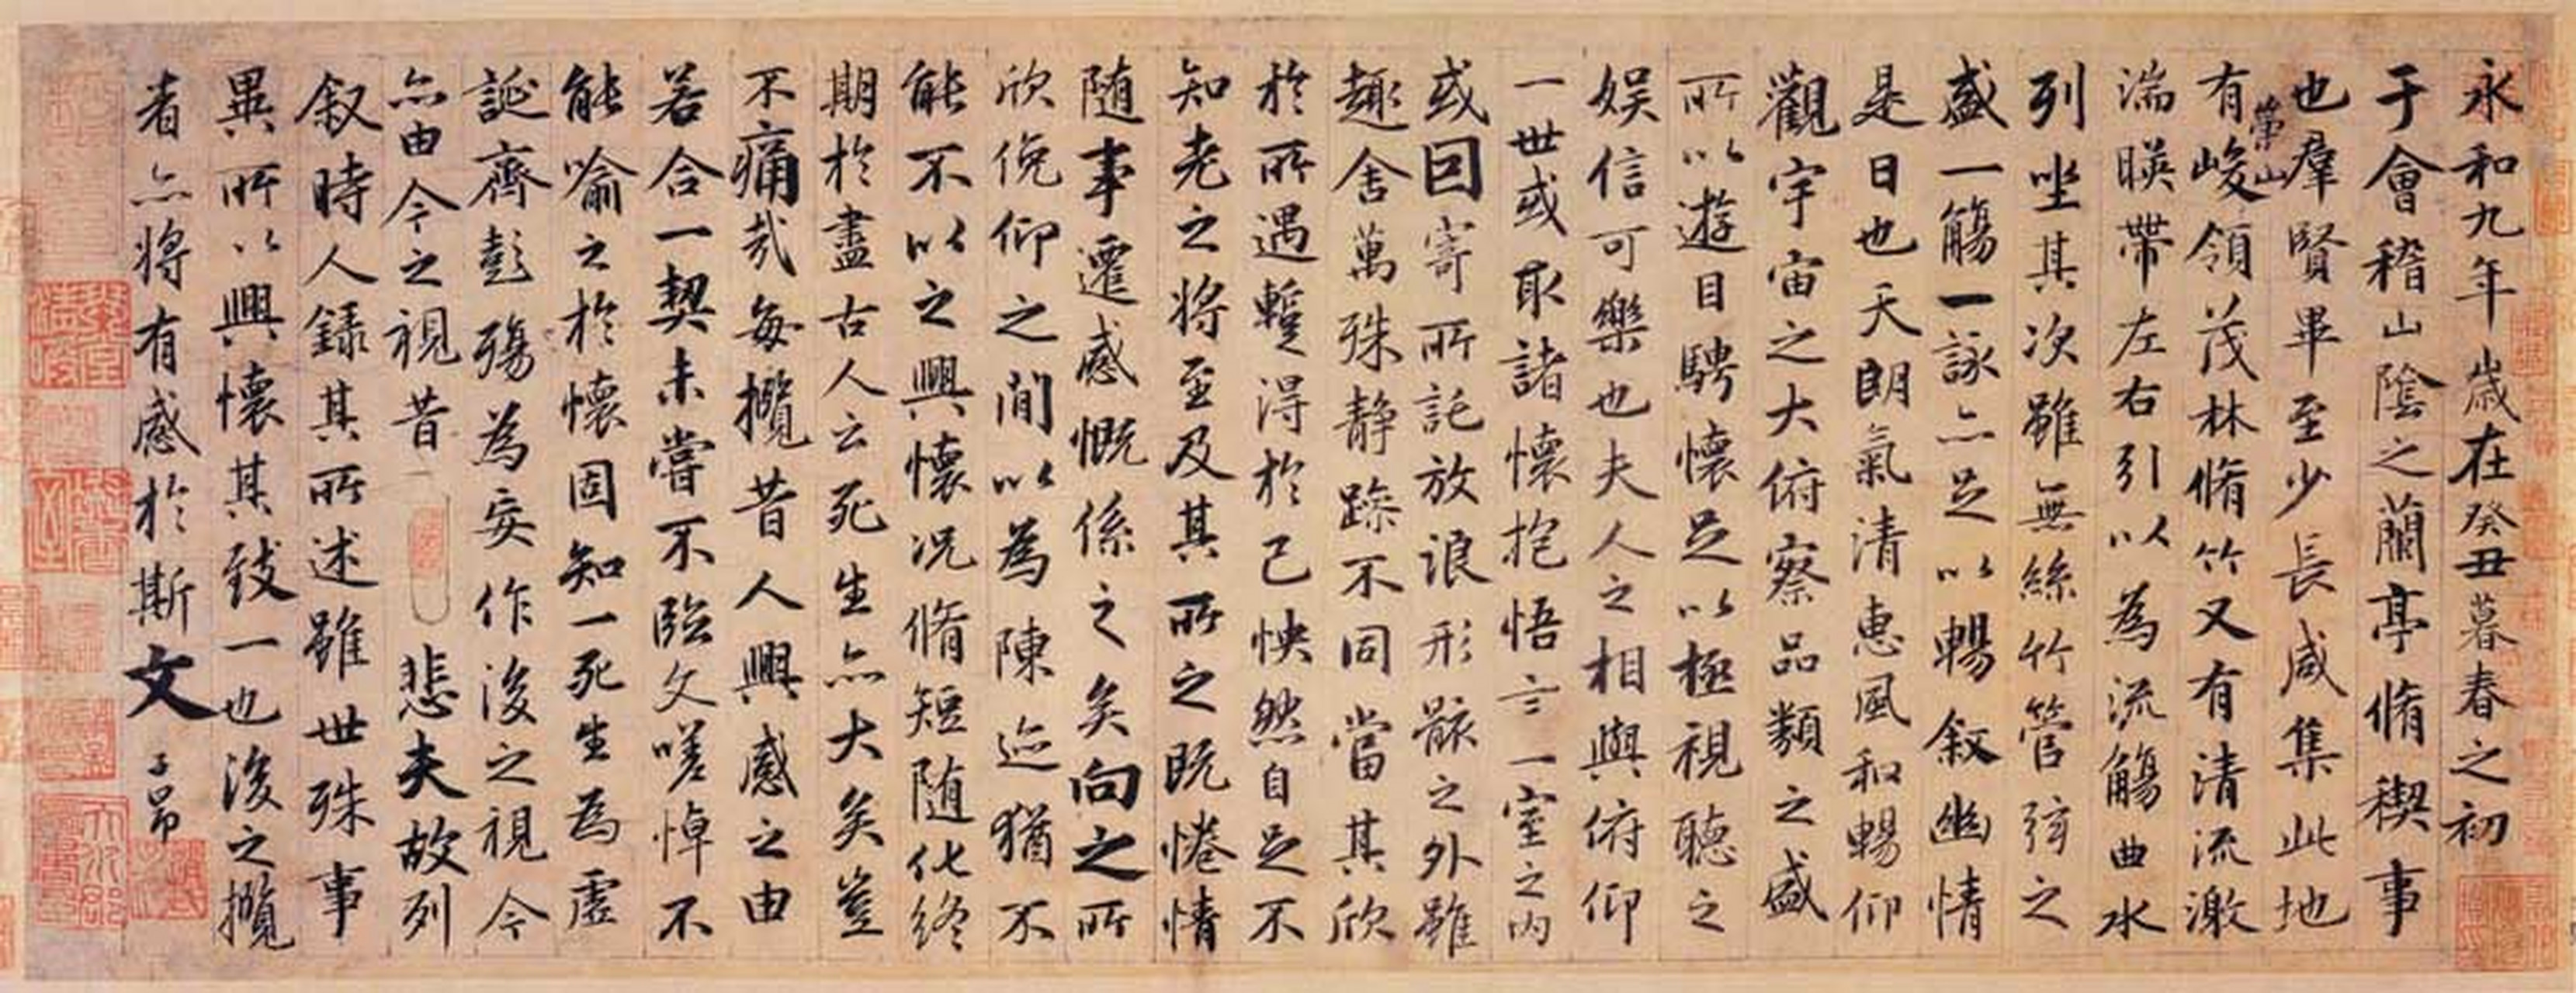 永和九年歲在癸丑暮春之初
于會稽山陰之蘭亭脩禊事
也羣賢畢至少長咸集此地
崇山
有峻領茂林脩竹又有清流激
湍暎帶左右引以為流觴曲水
列坐其次雖無絲竹管弦之
盛一觴一詠亦足以暢敘幽情
是日也天朗氣清惠風和暢仰
觀宇宙之大俯察品類之盛
所以遊目騁懷足以極視聽之
娛信可樂也夫人之相與俯仰
一世或取諸懷抱悟言一室之內
或因寄所託放浪形骸之外雖
趣舍萬殊静躁不同當其欣
於所遇蹔得於己怏然自足不
知老之將至及其所之既惓情
随事遷感慨係之矣向之所
欣俛仰之間以為陳迹猶不
能不以之興懷况脩短随化終
期於盡古人云死生亦大矣豈
不痛哉每攬昔人興感之由
若合一契未嘗不臨文嗟悼不
能喻之於懷固知一死生為虛
誕齊彭殤為妄作後之視今
亦由今之視昔悲夫故列
叙時人録其所述雖世殊事
異所以興懷其致一也後之攬
者亦將有感於斯文 子昂